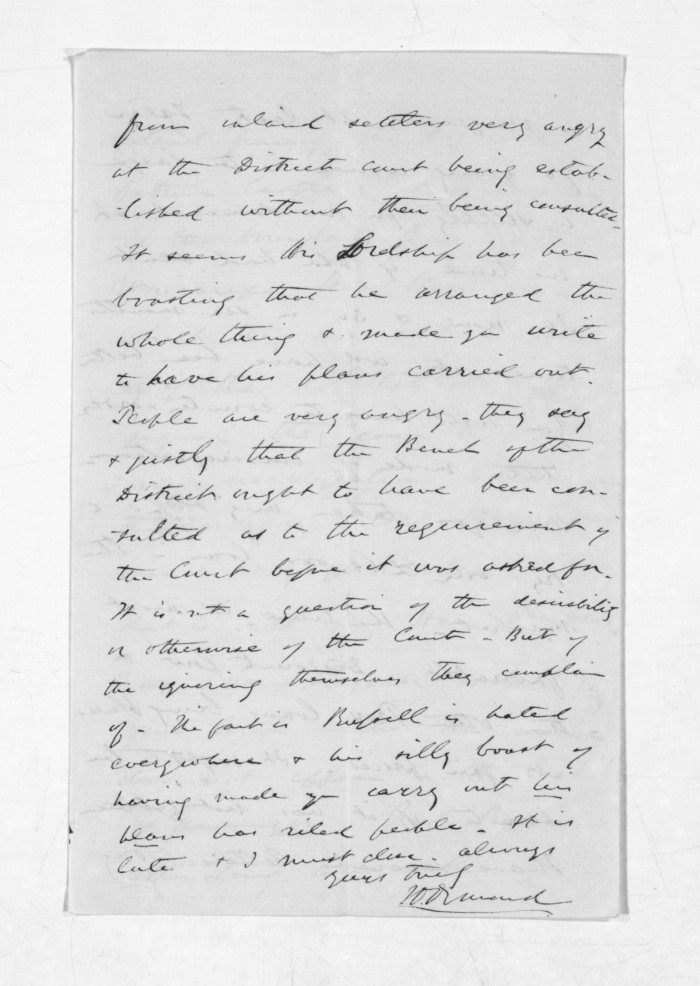 from inland settlers very angry
at the District Court being estab-
-lished without their being consulted.
It seems His Lordship has been
boasting that he arranged the
whole thing & made you write
to have his plans carried out.
People are very angry - they say
& justly that the Bench of the
District ought to have been con-
-sulted as to the requirement of
the Court before it was asked for.
It is not a question of the desirability
or otherwise of the Court - But of
the ignoring themselves they complain
of - The fact is Russell is hated
everywhere & his silly boast of
having made you carry out his
plans has riled people - It is
late & I must close. always
yours truly
J D Ormond